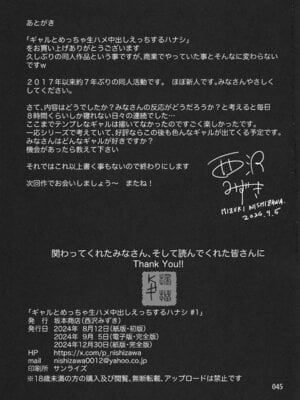 あとがき
「ギャルとめっちゃ生ハメ中出しえっちするハナシ」
をお買い上げありがとうございます
久しぶりの同人作品という事ですが、商業でやっていた事とそんなに変わらない
ですw
2017年以来約7年ぶりの同人活動です。 ほぼ新人です。みなさんやさしく
してください。
さて、内容はどうでしたか?みなさんの反応がどうだろうか?と考えると毎日
8時間くらいしか寝れない日々の連続でした…
ここまでテンプレなギャルは描いてなかったのですごく楽しかったです。
一応シリーズで考えていて、好評なら この後も色んなギャルが出てくる予定です。
みなさんはどんなギャルが好きですか?
機会があったら教えて下さい
それではこれ以上書く事もないので終わりにします
次回作でお会いしましょう~ またね!
西沢
みずき
MIZUKI NISHIZAWA.
2024.9.5
関わってくれたみなさん、そして読んでくれた皆さんに
Thank You!!
「ギャルとめっちゃ生ハメ中出しえっちするハナシ #1」
発 行 坂本商店(西沢みずき)
発行日 2024年 8月12日(紙版・初版)
2024年 9月 5日(電子版・完全版)
2024年12月30日(紙版・完全版)
HP https://x.com/p_nishizawa
メール nishizawa0012@yahoo.co.jp
印刷所 サンライズ
※18歳未満の方の購入及び閲覧、無断転載、アップロードは禁止です
045